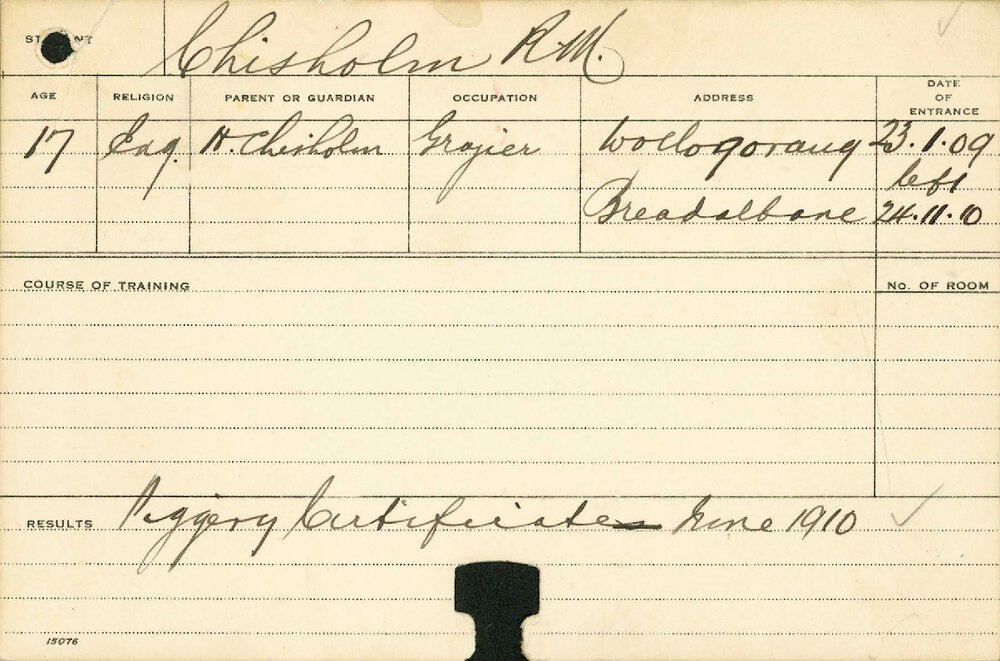 STUDENT Chisholm R.M.
AGE RELIGION PARENT OR GUARDIAN OCCUPATION ADDRESS DATE OF ENTRANCE
17 Eng. H. Chisholm Grazier Wollogorang 23.1.09
left
Breadalbane 24.11.10
COURSE OF TRAINING No. OF ROOM
RESULTS Piggery Certificate June 1910
15076